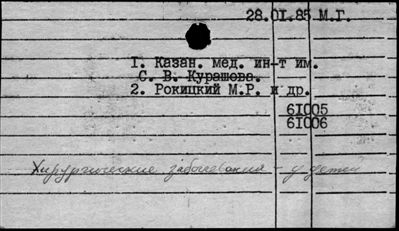 28.01.85 М.Г.
1. Казан. мед. ин-т им.
С. В. Курашова.
2. Рокицкий М.Р. и др.
61005
61006
Хирургические заболевания - у детей